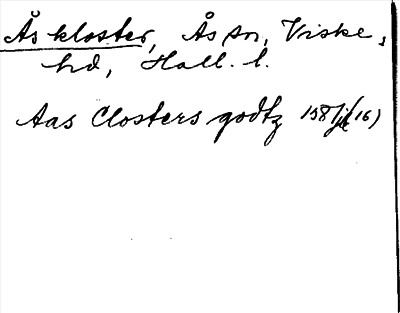 Ås kloster, Ås sn, Viske,
hd, Hall. l.
Aas Closters godtz 158 (16)